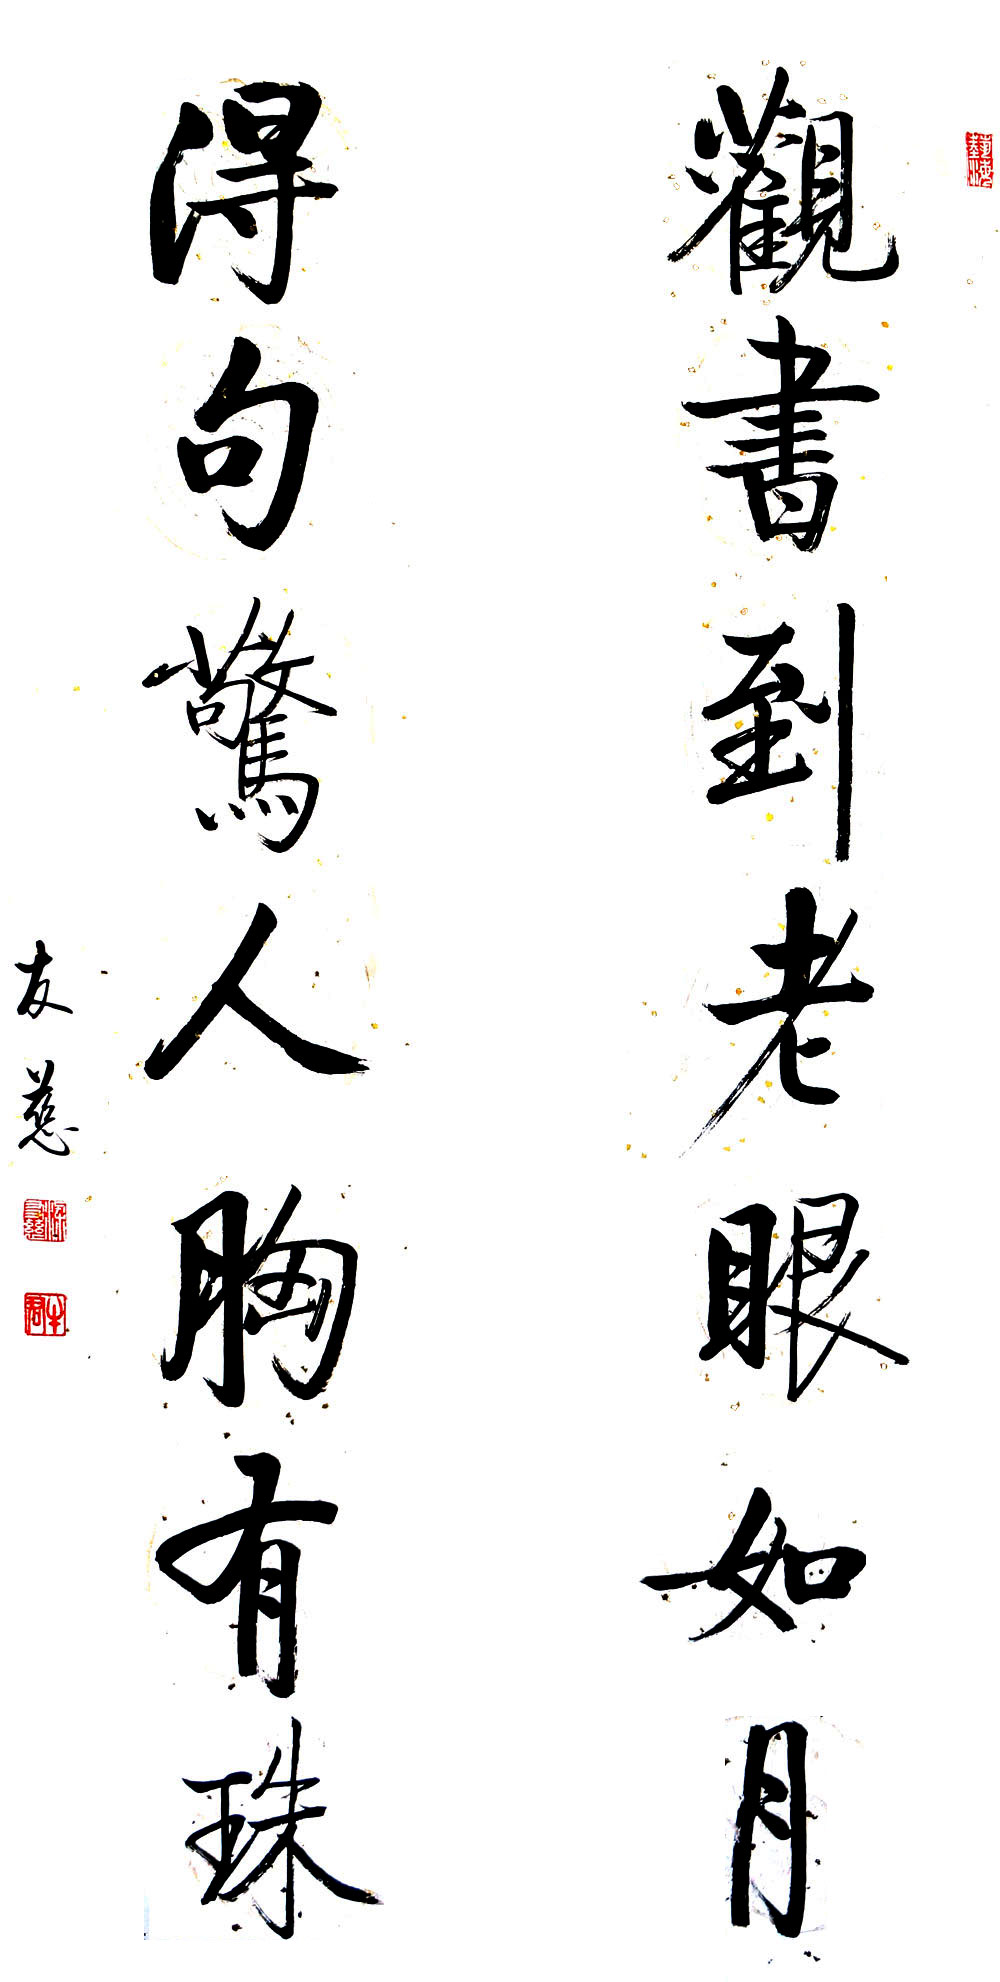 觀書到老眼如月
得句驚人胸有珠
友慈